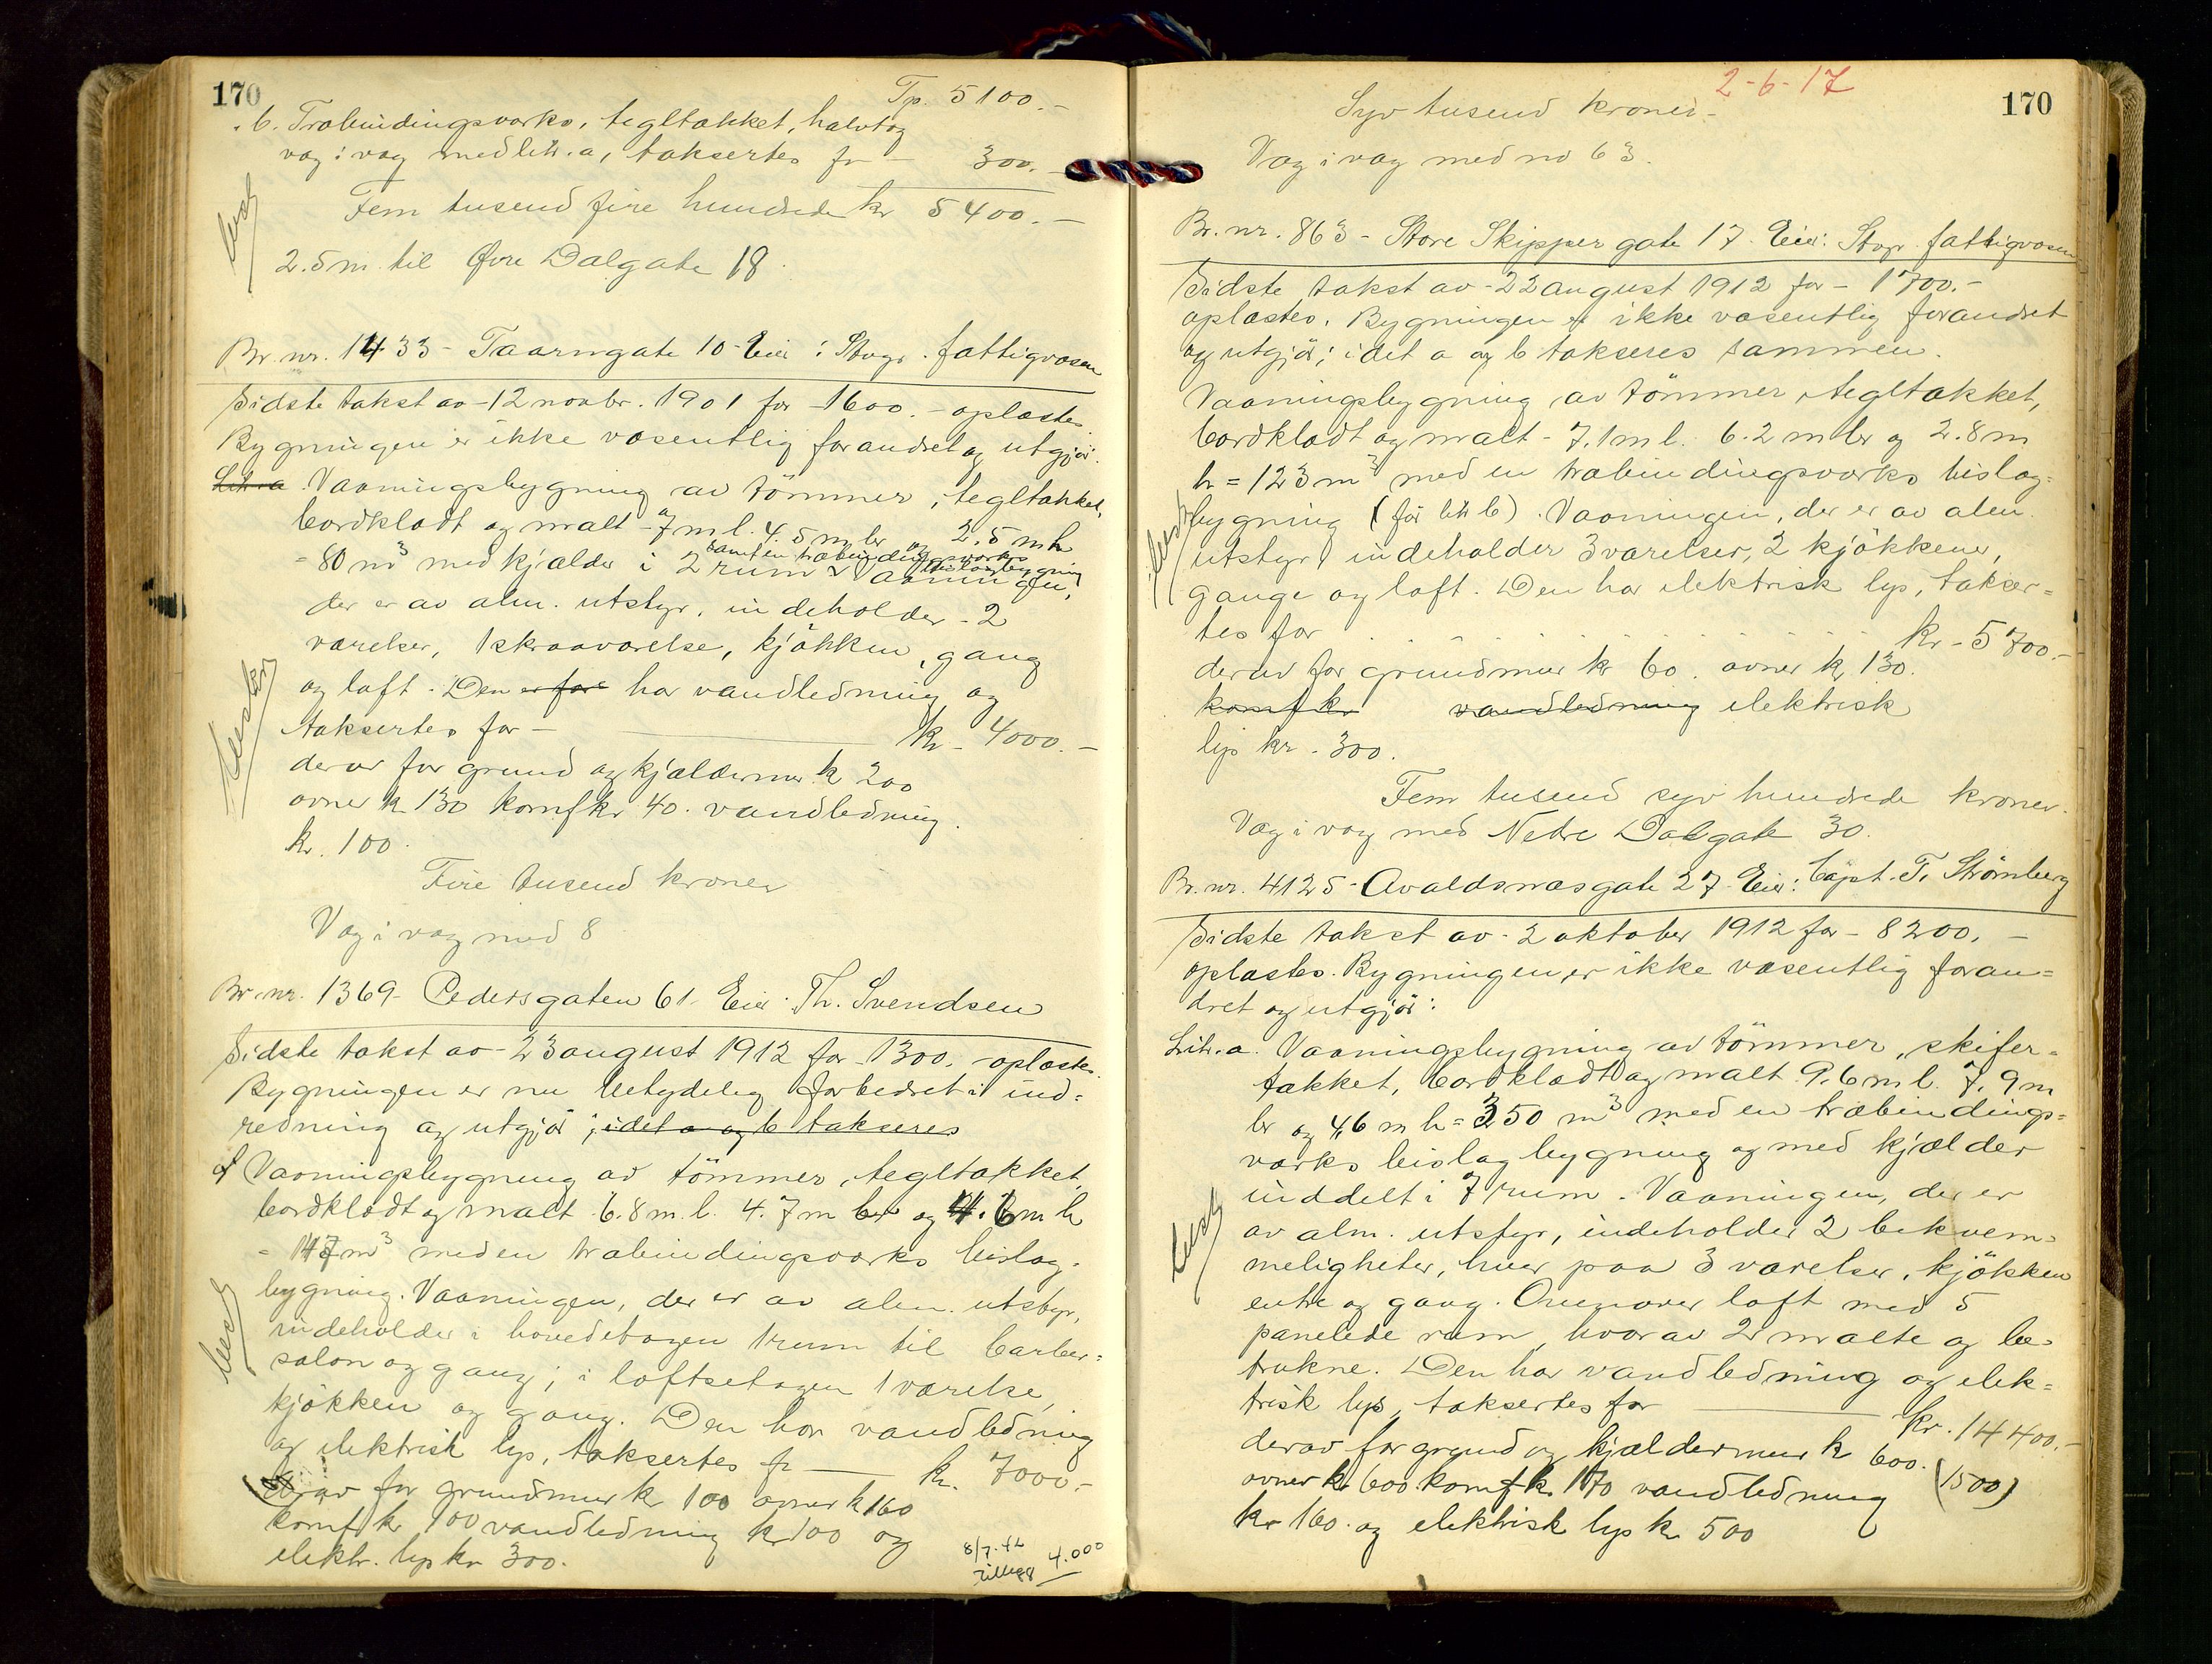 170
Tp. 5100.-
b. Træbindingsverks, tegltækket, halvtag
væg i væg med litr. a, taksertes fr - 300.-
Fem tusend fire hundrede kr 5400.-
2.5 m. til Øvre Dalgate 18.
Br. nr. 1433 - Taarngate 10 - Eier: Stvgr. fattigvæsen
Sidste takst av - 12 novbr. 1901 for - 1600.- oplæstes.
Bygningen er ikke væsentlig forandret og utgjør:
Litr. a Vaaningsbygning av tömmer, tegltækket,
bordklædt og malt - 7 m l. 4.5 m br og 2.5 m h
= 80 m³ med kjælder i 2 rum samt en træbindingsverks bislagbygning. Vaaningen,
der er av alm. utstyr, indeholder - 2
værelser, 1 skraaværelse, kjökken, gang
og loft. Den er for har vandledning og
taksertes for - kr. 4000.-
derav for grund og kjældermur k 200
ovner k 130 komf kr 40. vandledning
kr. 100.
Fire tusend kroner
Væg i væg med 8
Br. nr. 1369 - Pedersgaten 61. Eier: Th. Svendsen
Sidste takst av - 23 august 1912 for - 1300. - oplæstes.
Bygningen er nu betydelig forbedret i ind-
redning og utgjör; idet a og b takseres
Vaaningsbygning av tömmer, tegltækket,
bordklædt og malt 6.8 m. l. 4.7 m br og 4.6 m h
= 147 m³ med en træbindingsverks bislag-
bygning. Vaaningen, der er av alm. utstyr,
indeholder i hovedetagen 1 rum til barber-
salon og gang; i loftsetagen 1 værelse,
kjökken og gang. Den har vandledning
og elektrisk lys, taksertes fr kr. 7000.-
derav for grundmur k 100 ovner k 160
komf. kr 100 vandledning kr 100 og
elektr. lys kr 300.
8/7.42
tillegg 4.000
2-6-17
170
Syv tusend kroner.
Væg i væg med no 63.
Br. nr. 863 - Store Skippergate 17. Eier: Stvgr. fattigvæsen
Sidste takst av - 22 august 1912 for - 1700.-
oplæstes. Bygningen er ikke væsentlig forandret
og utgjör; idet a og b takseres sammen.
Vaaningsbygning av tömmer, tegltækket,
bordklædt og malt - 7.1 m l. 6.2 m br og 2.8 m
h = 123 m³ med en træbindingsverks bislag-
bygning (før litr b). Vaaningen, der er av alm.
utstyr indeholder 3 værelser, 2 kjökkener,
gange og loft. Den har elektrisk lys, takser-
tes for kr - 5700.-
derav for grundmur kr 60. ovner k 130.
komf kr vandledning elektrisk
lys kr. 300.
Fem tusend syv hundrede kroner.
Væg i væg med Nedre Dalgate 30.
Br. nr. 4125 - Avaldsnæsgate 27. Eier: Capt. T. Strömberg
Sidste takst av - 2 oktober 1912 for - 8200. -
oplæstes. Bygningen er ikke væsentlig foran-
dret og utgjör:
Litr. a. Vaaningsbygning av tömmer, skifer-
tækket, bordklædt og malt 9.6 m l. 7.9 m
br og 4.6 m h = 350 m³ med en træbindings-
verks bislagbygning og med kjælder
inddelt i 7 rum. Vaaningen, der er
av alm. utstyr, indeholder 2 bekvem-
meligheter, hver paa 3 værelser, kjökken
entre og gang. Ovenover loft med 5
panelede rum, hvorav 2 malte og be-
trukne. Den har vandledning og elek-
trisk lys, taksertes for kr. 14400.-
derav for grund og kjældermur k 600. (1500)
ovner k 600. komf k. 170 vandledning
kr 160. og elektrisk lys kr 500